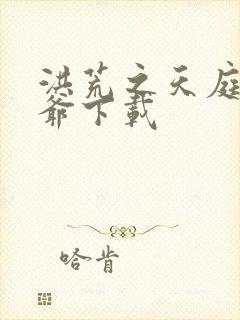 洪荒之天庭
爺下載
哈肯